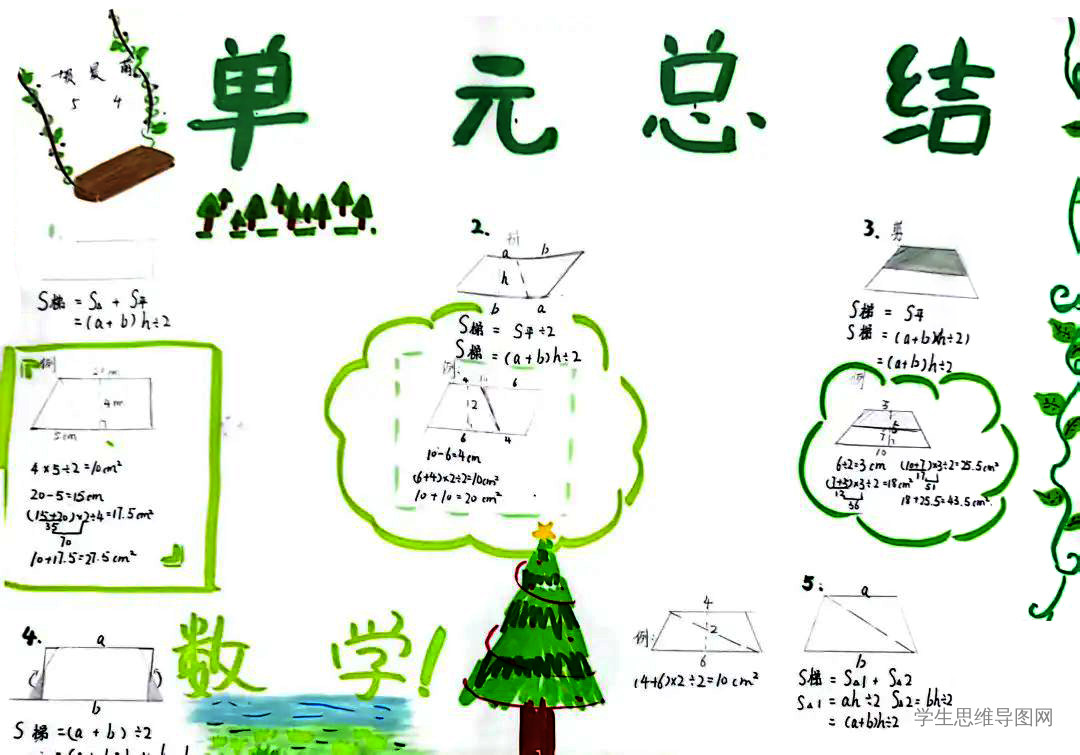 单 元 总 结
5 4
S梯 = S△ + S平
= (a+b)h÷2
例
4m
5cm
4×5÷2=10cm²
20-5=15cm
(15+20)×2÷4=17.5cm²
35
70
10+17.5=27.5cm²
2.
a b
h
b a
S梯 = S平÷2
S梯 = (a+b)h÷2
例:
4 6
12
6 4
10-6=4cm
(6+4)×2÷2=10cm²
10+10=20cm²
3. 剪
S梯 = S平
S梯 = (a+b)(h÷2)
= (a+b)h÷2
例
5
7
10
6÷2=3cm (10+7)×3÷2=25.5cm²
17
51
×3÷2=18cm²
12
36
18+25.5=43.5cm²
4.
a
b
S梯=(a+b)÷2
数 学!
例:
4
2
6
(4+6)×2÷2=10cm²
5.
a
b
S梯 = S△1 + S△2
S△1 = ah÷2 S△2=bh÷2
= (a+b)h÷2
学生思维导图网